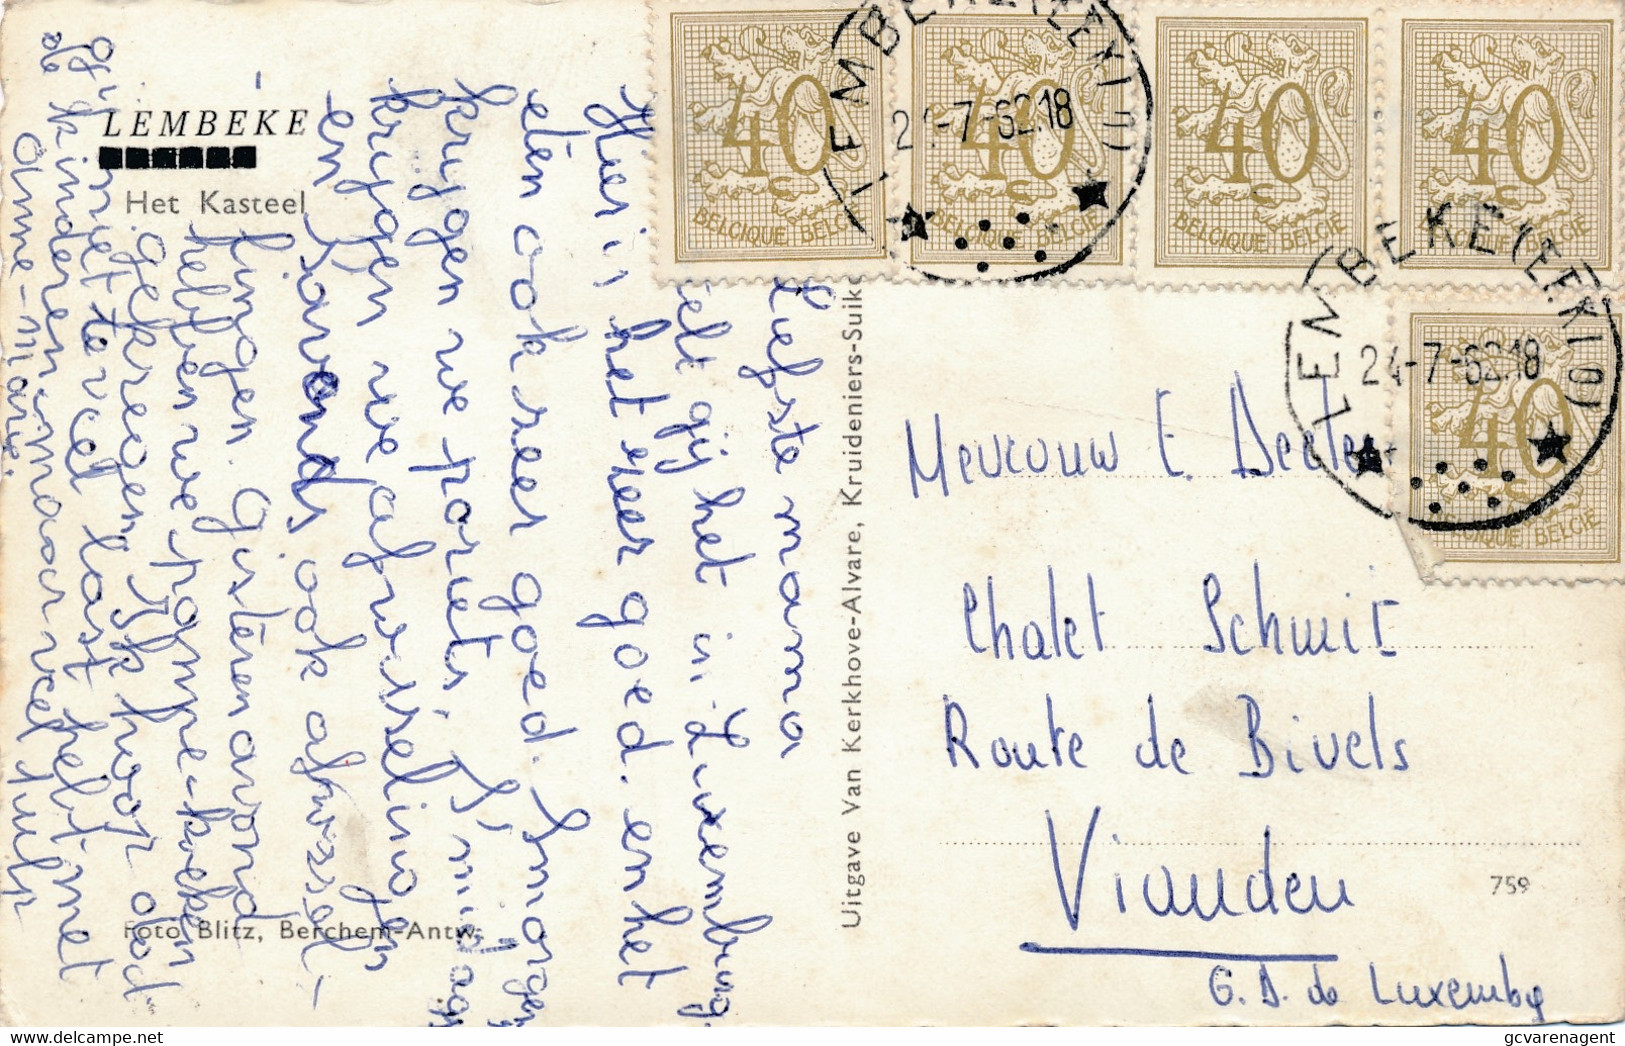 LEMBEKE
Het Kasteel
Foto Blitz, Berchem-Antw.
Uitgave Van Kerkhove-Alvare, Kruideniers-Suik
759
40
BELGIQUE BELGIE
40
BELGIQUE BELGIE
40
BELGIQUE BELGIË
40
BELGIQUE BELGIË
40
BELGIQUE BELGIË
LEMBEKE (EEKLO)
24-7-62.18
LEMBEKE (EEKLO)
24-7-62.18
Liefste mama
stelt gij het in Luxemburg.
Hier is het zeer goed. en het
eten ook zeer goed. Smorgen
krijgen we pariets S'midags
krijgen we afwiseling
en Siavonds ook afwissel-
lingen. Gisteren avond
hebben we pannekoeken
gekregen. Ik hoop dat
gij niet te veel last hebt met
de kinderen maar veel hulp
anne-marie.
Mevrouw E. Decler
Chalet Schmit
Route de Bivels
Vianden
G. D. de Luxembg
gcvarenagent